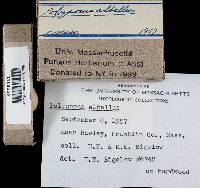 Polyporus albellus
1957
Univ. Massachusetts
Fungus Herbarium (MASS)
Donated to NY in 1989
HERBARIUM OF
THE UNIVERSITY OF MASSACHUSETTS
MYCOLOGICAL COLLECTIONS
Polyporus albellus
September 6, 1957
near Rowley, Franklin Co., Mass.
coll. H.E. & M.E. Bigelow
det. H.E. Bigelow
on hardwood